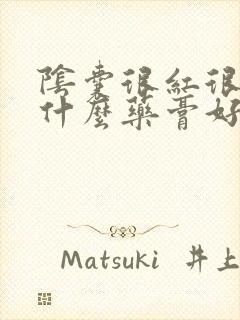 陰囊很紅很
什麼藥膏好
Matsuki 井上